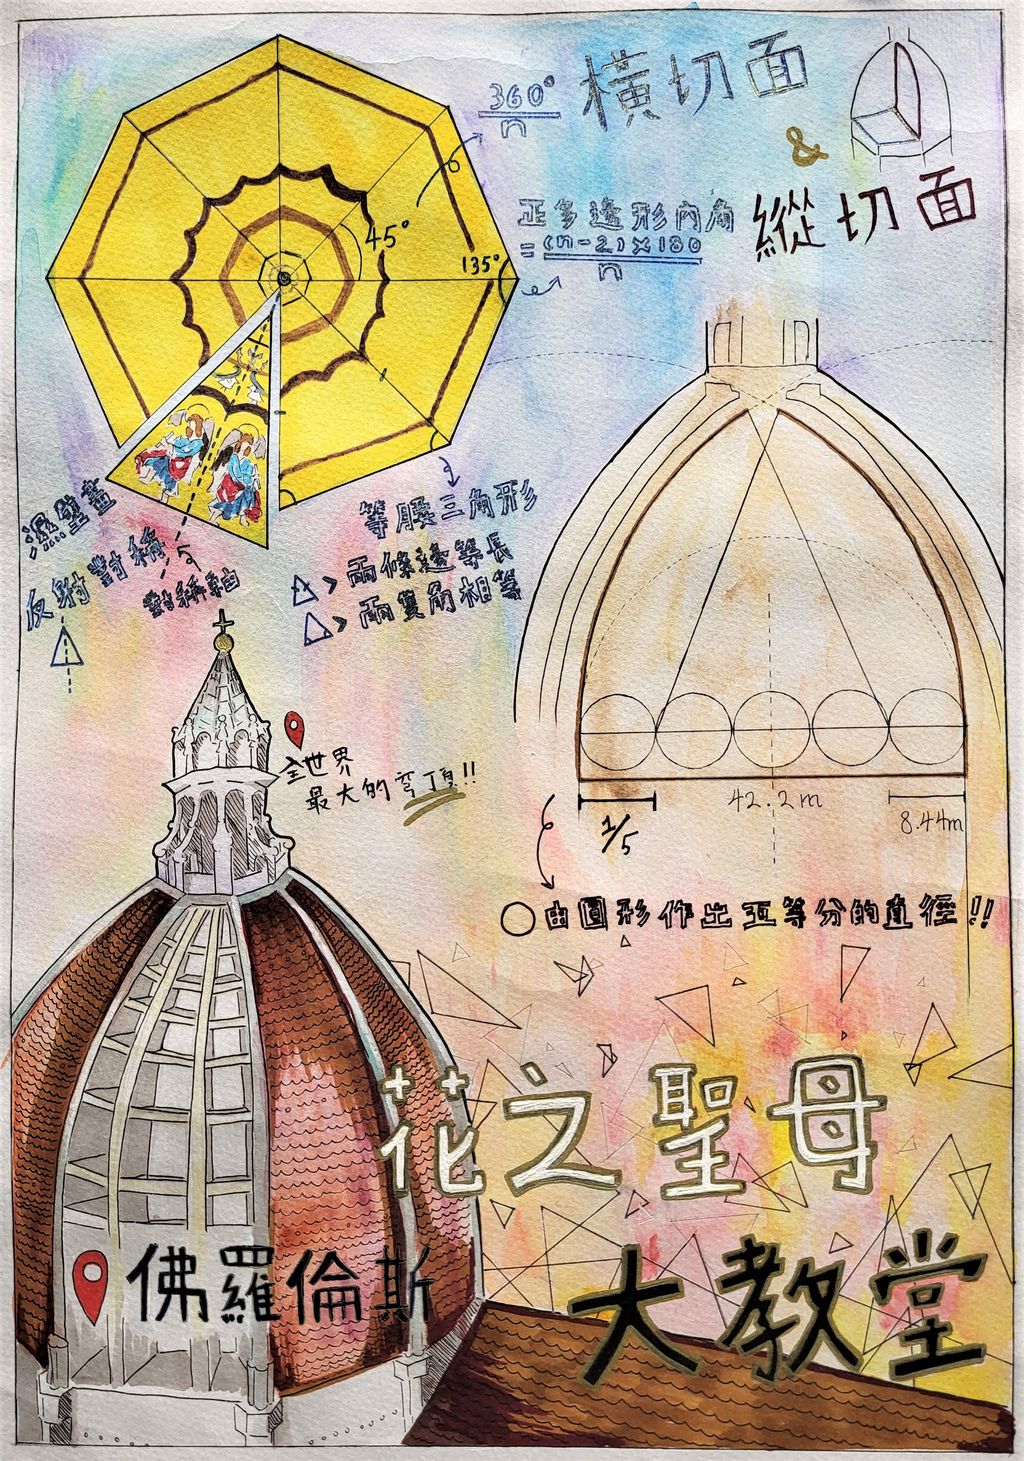 橫切面
&
縱切面
360°
n
45°
135°
正多邊形內角
= (n-2)×180
n
濕壁畫
反射對稱
對稱軸
等腰三角形
兩條邊等長
兩隻角相等
全世界
最大的穹頂!!
42.2m
8.44m
1/5
由圓形作出五等分的直徑!!
花之聖母
大教堂
佛羅倫斯